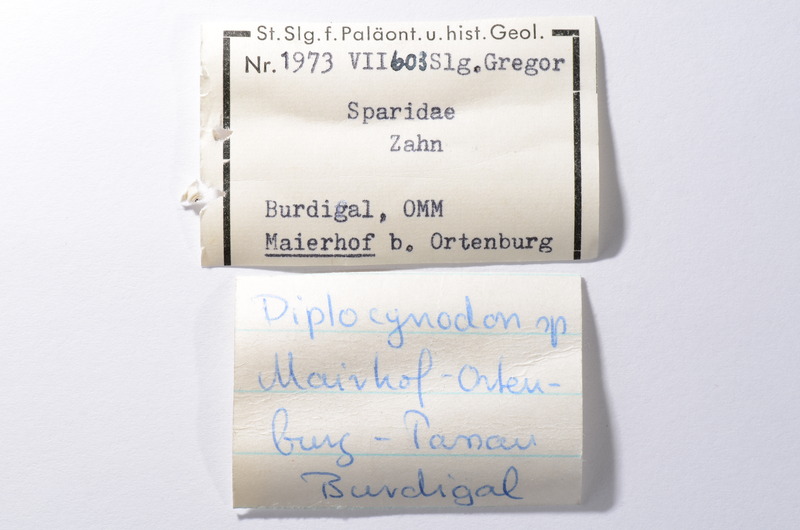 St. Slg. f. Paläont. u. hist. Geol.
Nr. 1973 VII 603 Slg. Gregor
Sparidae
Zahn
Burdigal, OMM
Maierhof b. Ortenburg
Diplocynodon sp
Mairhof-Orten-
burg - Passau
Burdigal